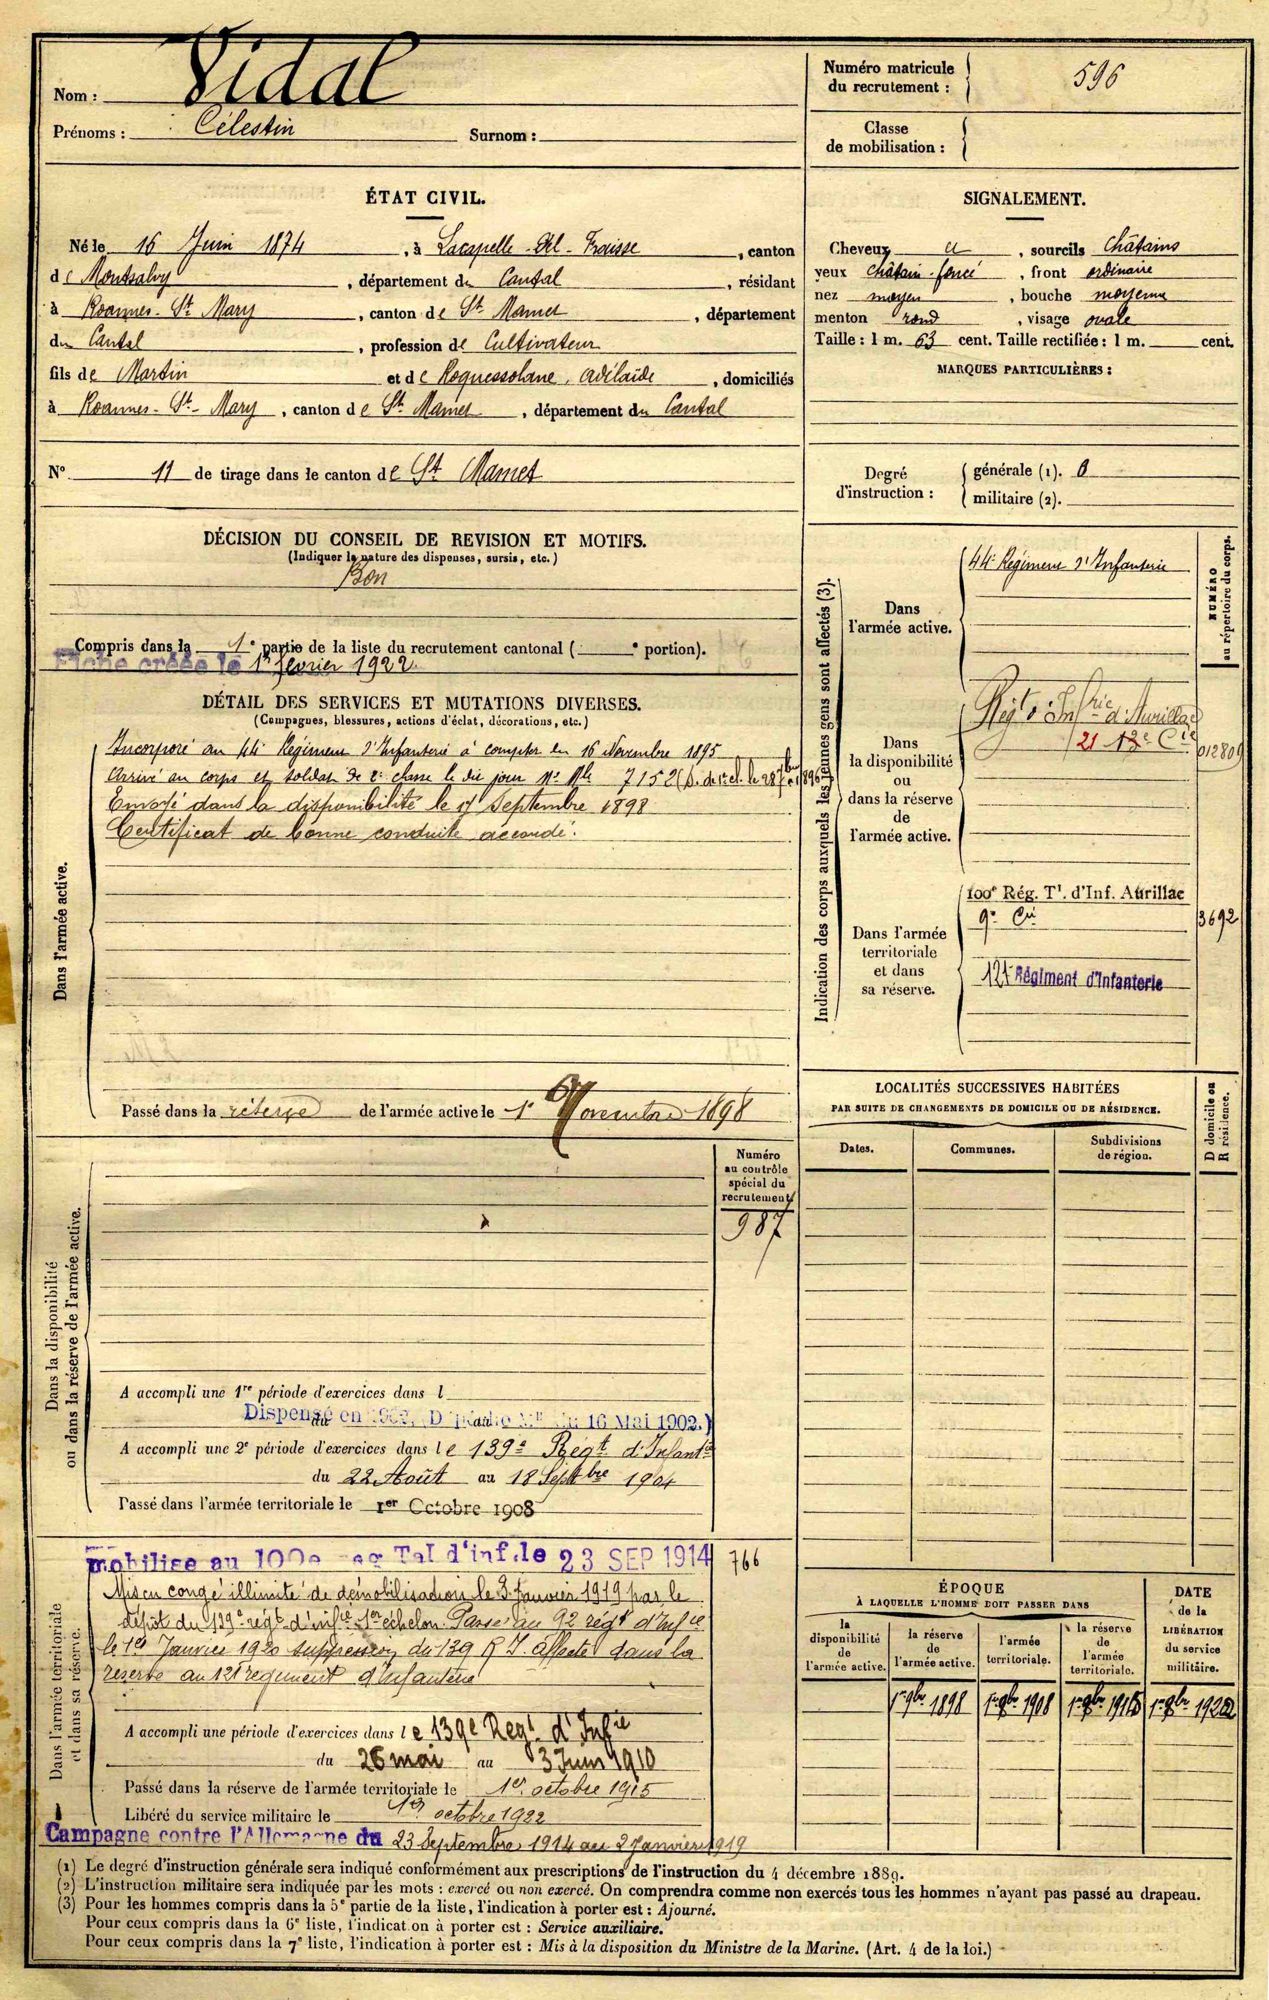 Nom : Vidal
Prénoms : Célestin Surnom :
Numéro matricule du recrutement : 596
Classe de mobilisation :
ÉTAT CIVIL.
Né le 16 Juin 1874, à Lacapelle-del-Fraisse, canton
de Montsalvy, département du Cantal, résidant
à Roannes-St Mary, canton de St Mamet, département
du Cantal, profession de Cultivateur
fils de Martin et de Roquessolane, Adélaïde, domiciliés
à Roannes-St-Mary, canton de St Mamet, département du Cantal
N° 11 de tirage dans le canton de St Mamet
SIGNALEMENT.
Cheveux et, sourcils châtains
yeux châtain-foncé, front ordinaire
nez moyen, bouche moyenne
menton rond, visage ovale
Taille : 1 m. 63 cent. Taille rectifiée : 1 m. cent.
MARQUES PARTICULIÈRES :
Degré d'instruction : générale (1). 0
militaire (2).
DÉCISION DU CONSEIL DE REVISION ET MOTIFS.
(Indiquer la nature des dispenses, sursis, etc.)
Bon
Compris dans la 1e partie de la liste du recrutement cantonal ( e portion).
Fiche créée le 1r février 1922.
DÉTAIL DES SERVICES ET MUTATIONS DIVERSES.
(Campagnes, blessures, actions d'éclat, décorations, etc.)
Dans l'armée active.
Incorporé au 44e Régiment d'Infanterie à compter du 16 Novembre 1895
Arrivé au corps et soldat de 2e classe le dit jour No Mle 7152 (S. de 1e cl. le 28 7bre 1896)
Envoyé dans la disponibilité le 17 Septembre 1898
Certificat de bonne conduite accordé.
Passé dans la réserve de l'armée active le 1er Novembre 1898
Indication des corps auxquels les jeunes gens sont affectés (3).
NUMÉRO au répertoire du corps.
Dans l'armée active.
44e Régiment d'Infanterie
Dans la disponibilité ou dans la réserve de l'armée active.
Régt d'Infrie d'Aurillac
21 13e Cie
012809
Dans l'armée territoriale et dans sa réserve.
100e Rég. Tl. d'Inf. Aurillac
9e Cie
3692
121e Régiment d'Infanterie
LOCALITÉS SUCCESSIVES HABITÉES
PAR SUITE DE CHANGEMENTS DE DOMICILE OU DE RÉSIDENCE.
Dates. Communes. Subdivisions de région. D domicile ou R résidence.
Dans la disponibilité ou dans la réserve de l'armée active.
Numéro au contrôle spécial du recrutement
987
A accompli une 1re période d'exercices dans l
du au
Dispensé en 1902. (Dépêche Mlle du 16 Mai 1902.)
A accompli une 2e période d'exercices dans le 139e Régt d'Infantie
du 22 Août au 18 Septbre 1904
Passé dans l'armée territoriale le 1er Octobre 1908
Dans l'armée territoriale et dans sa réserve.
mobilisé au 100e Reg Tal d'inf. le 23 SEP 1914
766
Mis en congé illimité de démobilisation le 3 Janvier 1919 par le
dépôt du 139e régt d'infie 1er échelon. Passé au 92 régt d'Infie
le 1er Janvier 1920 suppression du 139 R I. affecté dans la
réserve au 121 regiment d'Infanterie
A accompli une période d'exercices dans le 139e Regt d'Infie
du 26 mai au 3 Juin 1910
Passé dans la réserve de l'armée territoriale le 1er octobre 1915
Libéré du service militaire le 1er octobre 1922
Campagne contre l'Allemagne du 23 Septembre 1914 au 2 janvier 1919
ÉPOQUE À LAQUELLE L'HOMME DOIT PASSER DANS
DATE de la LIBÉRATION du service militaire.
la disponibilité de l'armée active. la réserve de l'armée active. l'armée territoriale. la réserve de l'armée territoriale.
1er 9bre 1898 1908 1922
(1) Le degré d'instruction générale sera indiqué conformément aux prescriptions de l'instruction du 4 décembre 1889.
(2) L'instruction militaire sera indiquée par les mots : exercé ou non exercé. On comprendra comme non exercés tous les hommes n'ayant pas passé au drapeau.
(3) Pour les hommes compris dans la 5e partie de la liste, l'indication à porter est : Ajourné.
Pour ceux compris dans la 6e liste, l'indication à porter est : Service auxiliaire.
Pour ceux compris dans la 7e liste, l'indication à porter est : Mis à la disposition du Ministre de la Marine. (Art. 4 de la loi.)